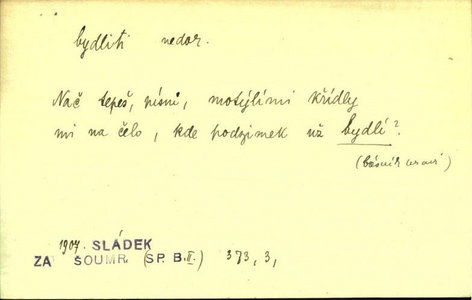 bydliti nedor.
Nač tepeš, písni, motýlími křídly
mi na čelo, kde podzimek už bydlí?
(básník
1907 SLÁDEK
ZA SOUMR. (SP. B. II.) 373, 3,